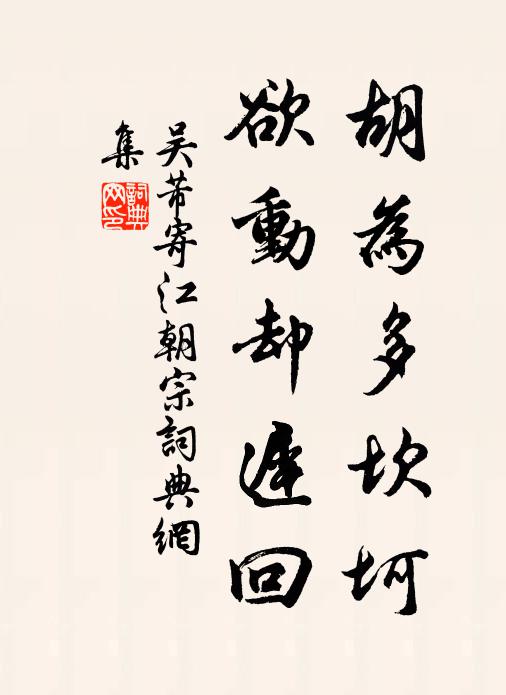 胡為多坎坷
欲動却遲回
吴芾寄江朝宗詞典網
集
詞典網印